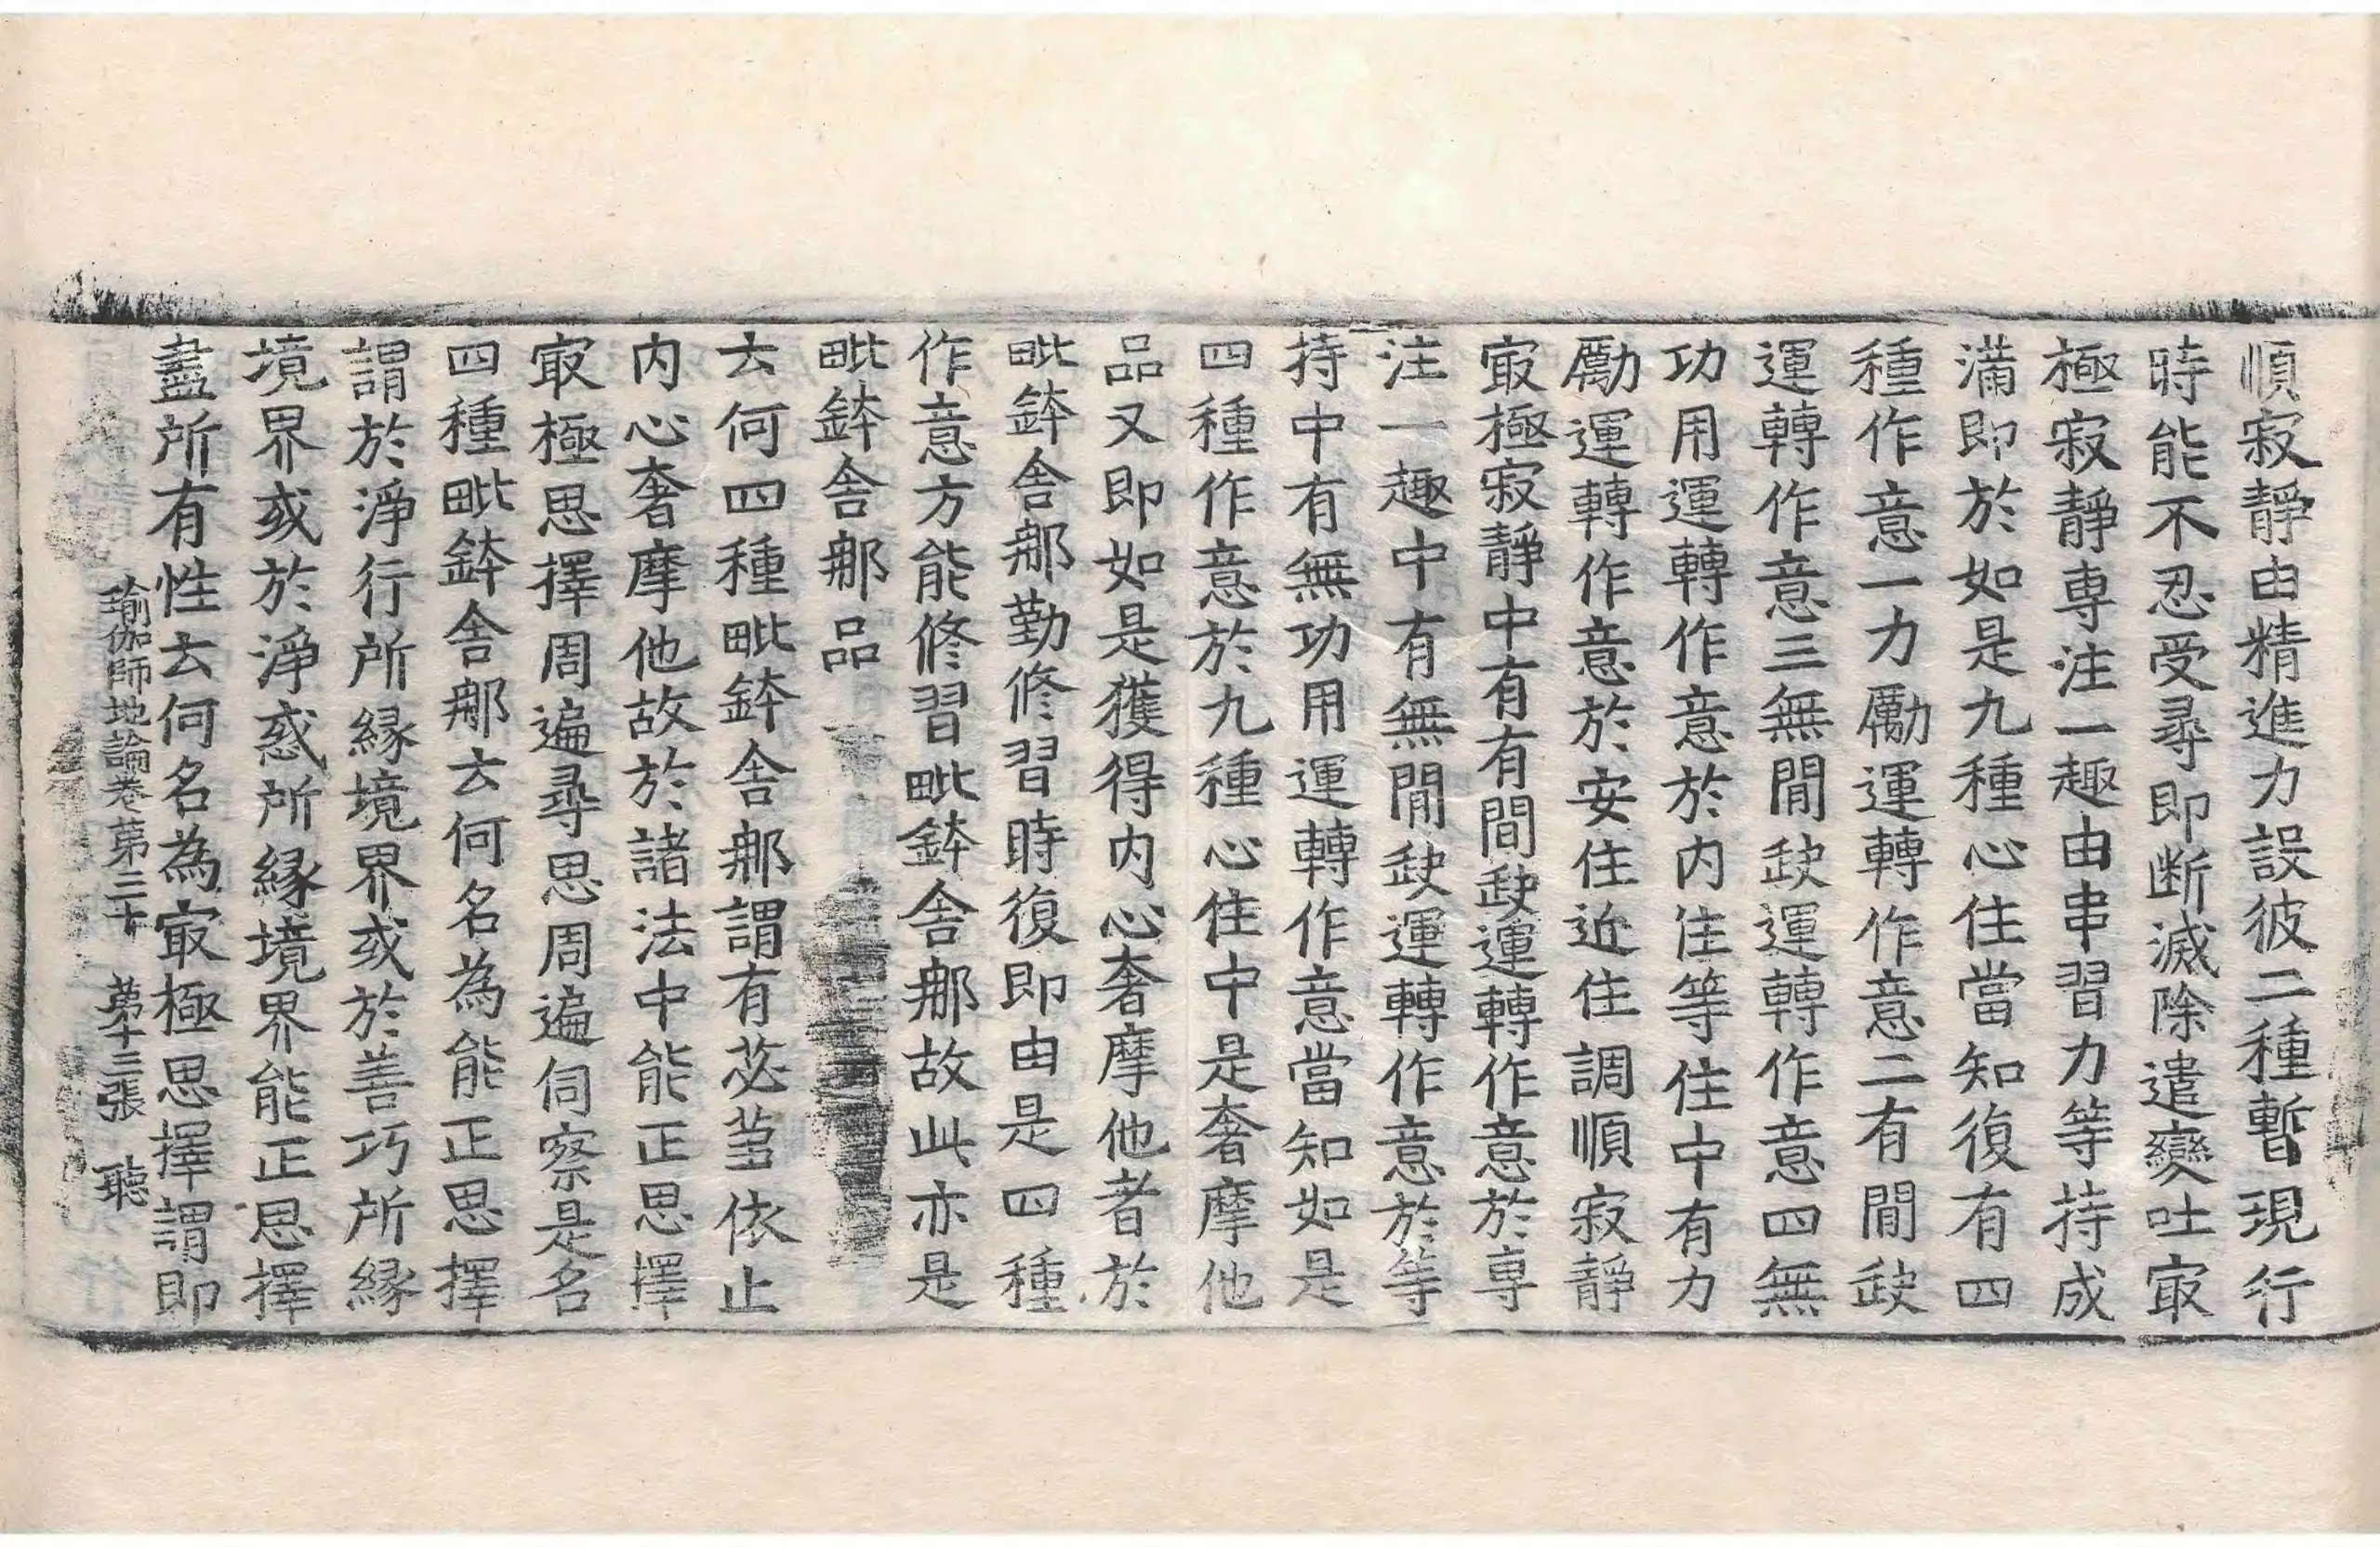 順寂靜由精進力設彼二種暫現行
時能不忍受尋即断滅除遣變吐㝡
極寂靜專注一趣由串習力等持成
滿即於如是九種心住當知復有四
種作意一力勵運轉作意二有間缺
運轉作意三無間缺運轉作意四無
功用運轉作意於内住等住中有力
勵運轉作意於安住近住調順寂靜
㝡極寂靜中有有間缺運轉作意於專
注一趣中有無間缺運轉作意於等
持中有無功用運轉作意當知如是
四種作意於九種心住中是奢摩他
品又即如是獲得内心奢摩他者於
毗鉢舍那勤修習時復即由是四種
作意方能修習毗鉢舍那故此亦是
毗鉢舍那品
云何四種毗鉢舍那謂有苾芻依止
内心奢摩他故於諸法中能正思擇
㝡極思擇周遍尋思周遍伺察是名
四種毗鉢舍那云何名為能正思擇
謂於淨行所緣境界或於善巧所緣
境界或於淨惑所緣境界能正思擇
盡所有性云何名為㝡極思擇謂即
瑜伽師地論卷第三十 第十三張 聽